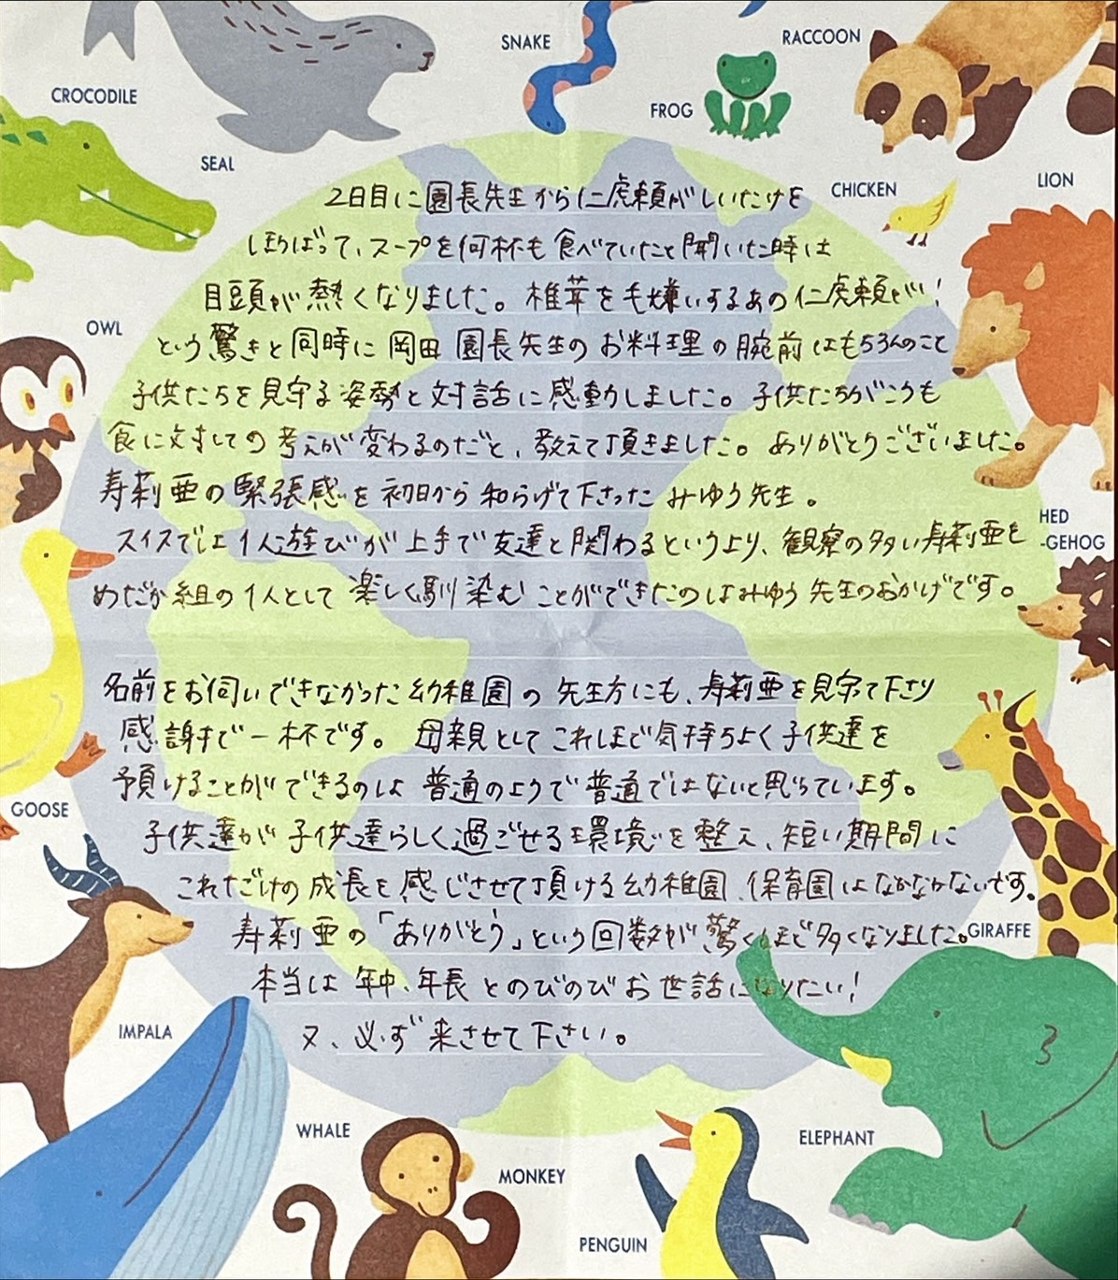 SNAKE
RACCOON
CROCODILE
FROG
SEAL
CHICKEN
LION
2日目に園長先生から仁虎頼がしいたけを
ほうばって、スープを何杯も食べていたと聞いた時は
目頭が熱くなりました。椎茸を毛嫌いするあの仁虎頼が!
OWL
という驚きと同時に岡田園長先生のお料理の腕前はもちろんのこと
子供たちを見守る姿勢と対話に感動しました。子供たちがこうも
食に対しての考えが変わるのだと、教えて頂きました。ありがとうございました。
寿莉亜の緊張感を初日から和らげて下さったみゆう先生。
HED
-GEHOG
スイスでは1人遊びが上手で友達と関わるというより、観察の多い寿莉亜を
めだか組の1人として楽しく馴染むことができたのはみゆう先生のおかげです。
名前をお伺いできなかった幼稚園の先生方にも、寿莉亜を見守て下さり
感謝で一杯です。母親としてこれほど気持ちよく子供達を
預けることができるのは普通のようで普通ではないと思っています。
GOOSE
子供達が子供達らしく過ごせる環境を整え、短い期間に
これだけの成長を感じさせて頂ける幼稚園、保育園はなかなかないです。
寿莉亜の「ありがとう」という回数が驚くほど多くなりました。
GIRAFFE
本当は年中、年長とのびのびお世話になりたい!
IMPALA
又、必ず来させて下さい。
WHALE
ELEPHANT
MONKEY
PENGUIN